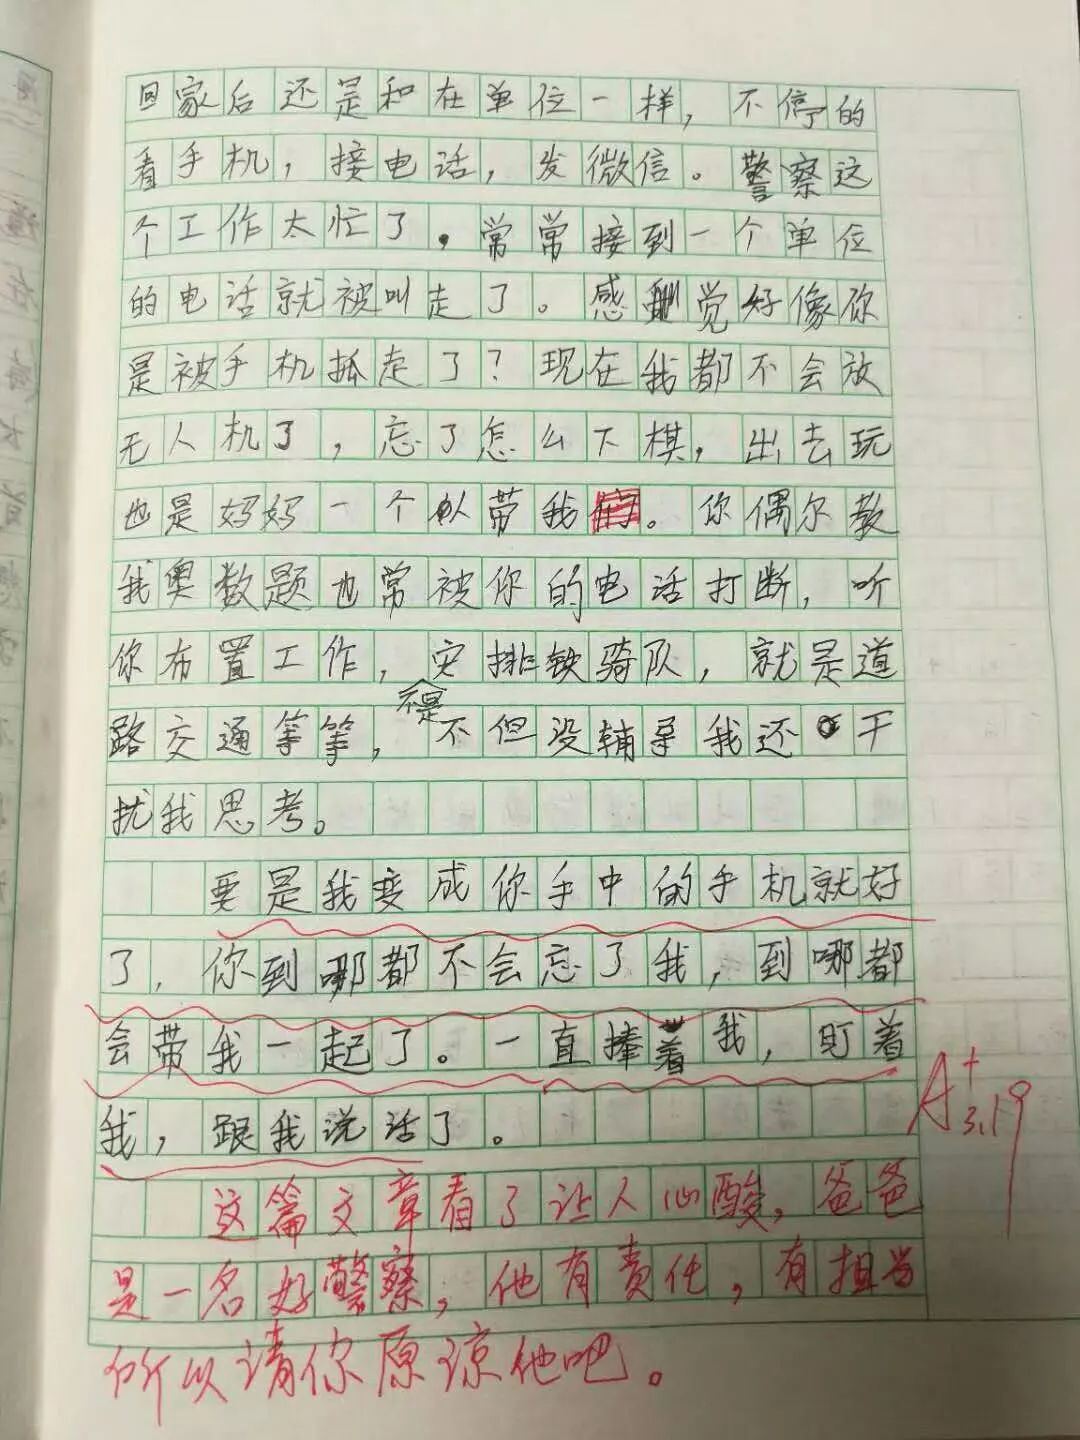 回家后还是和在单位一样，不停的
看手机，接电话，发微信。警察这
个工作太忙了，常常接到一个单位
的电话就被叫走了。感觉好像你
是被手机抓走了？现在我都不会放
无人机了，忘了怎么下棋，出去玩
也是妈妈一个人带我。你偶尔教
我奥数题也常被你的电话打断，听
你布置工作，安排铁骑队，就是道
不是
路交通等等，不但没辅导我还干
扰我思考。
要是我变成你手中的手机就好
了，你到哪都不会忘了我，到哪都
会带我一起了。一直捧着我，盯着
我，跟我说话了。
A+
3.19
这篇文章看了让人心酸，爸爸
是一名好警察，他有责任，有担当
所以请你原谅他吧。